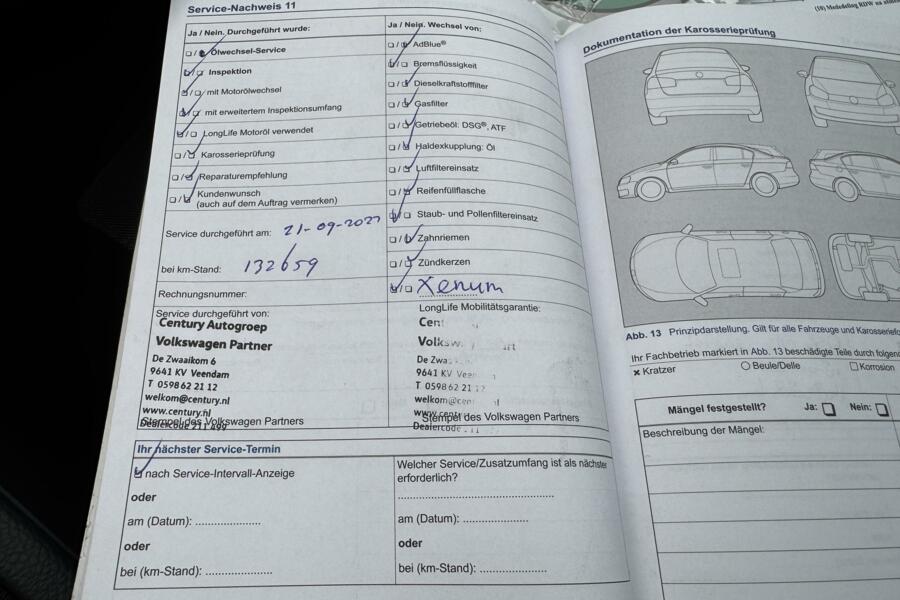 Service-Nachweis 11
Ja / Nein. Durchgeführt wurde:
Ölwechsel-Service
Inspektion
mit Motorölwechsel
mit erweitertem Inspektionsumfang
LongLife Motoröl verwendet
Karosserieprüfung
Reparaturempfehlung
Kundenwunsch
(auch auf dem Auftrag vermerken)
Service durchgeführt am: 21-09-2021
bei km-Stand: 132659
Rechnungsnummer:
Service durchgeführt von:
Century Autogroep
Volkswagen Partner
De Zwaaikom 6
9641 KV Veendam
T 0598 62 21 12
welkom@century.nl
www.century.nl
Dealercode 211 499
Stempel des Volkswagen Partners
Ja / Nein. Wechsel von:
AdBlue®
Bremsflüssigkeit
Dieselkraftstofffilter
Gasfilter
Getriebeöl: DSG®, ATF
Haldexkupplung: Öl
Luftfiltereinsatz
Reifenfüllflasche
Staub- und Pollenfiltereinsatz
Zahnriemen
Zündkerzen
Xenum
LongLife Mobilitätsgarantie:
9641 KV
T 0598 62 21
Dealercode
Stempel des Volkswagen Partners
Ihr nächster Service-Termin
nach Service-Intervall-Anzeige
oder
am (Datum): ....................
oder
bei (km-Stand): ....................
Welcher Service/Zusatzumfang ist als nächster
erforderlich?
am (Datum): ....................
oder
bei (km-Stand): ....................
(10) Mededeling RDW
Dokumentation der Karosserieprüfung
Abb. 13 Prinzipdarstellung. Gilt für alle Fahrzeuge und
Ihr Fachbetrieb markiert in Abb. 13 beschädigte Teile durch
× Kratzer
Beule/Delle
Korrosion
Mängel festgestellt? Ja: Nein:
Beschreibung der Mängel: